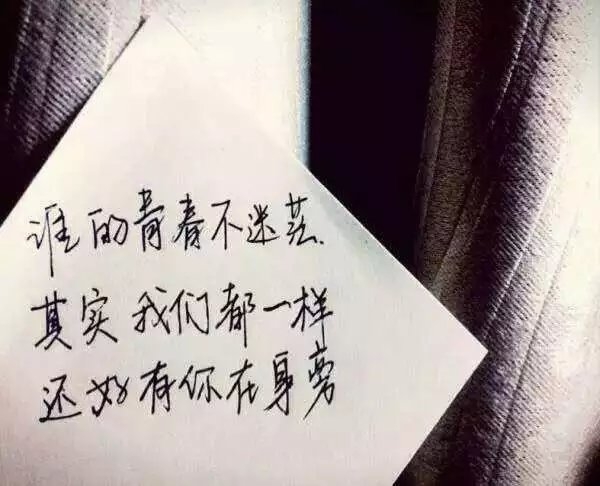 谁的青春不迷茫.
其实我们都一样
还好有你在身旁